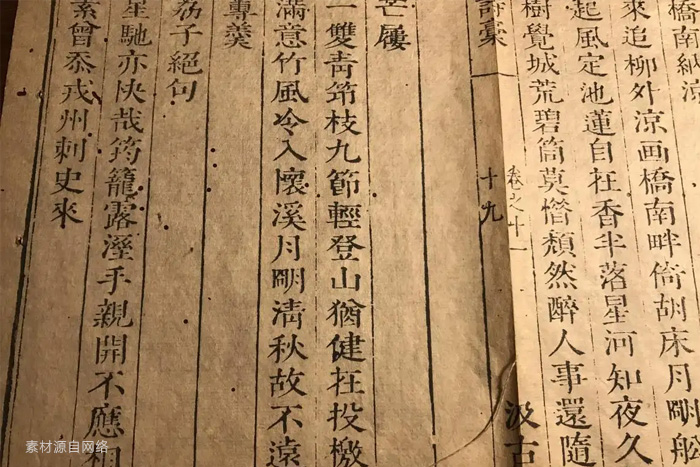 橋南納涼
來追柳外涼画橋南畔倚胡床月明船
起風定池蓮自在香半落星河知夜久
樹覺城荒碧筒莫惜頹然醉人事還隨
詩稾
十九
汲古
卷之十一
芒屨
一雙青筇枝九節輕登山猶健在投檄
滿意竹風冷入懷溪月明清秋故不遠
蓴羹
荔子絕句
星馳亦快哉筠籠露溼手親開不應相
曾忝戎州刺史來
素材源自网络